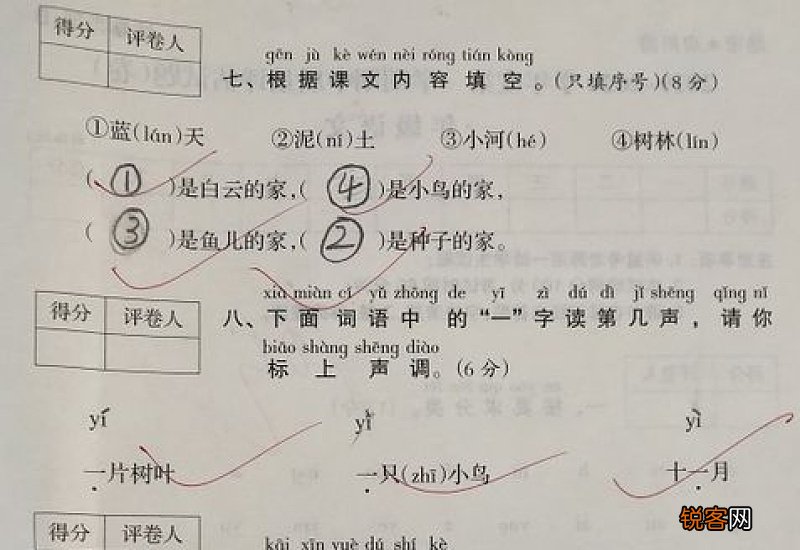 得分 评卷人
gēn jù kè wén nèi róng tián kòng
七、根据课文内容填空。(只填序号)(8分)
①蓝(lán)天 ②泥(ní)土 ③小河(hé) ④树林(lín)
(①)是白云的家,(④)是小鸟的家,
(③)是鱼儿的家,(②)是种子的家。
xià miàn cí yǔ zhōng de yī zì dú dì jǐ shēng qǐng nǐ
得分 评卷人
八、下面词语中的“一”字读第几声,请你
biāo shàng shēng diào
标上声调。(6分)
yí yì
一片树叶 一只(zhī)小鸟 十一月
得分 评卷人
kāi xīn yuè dú shí kè
锐客网